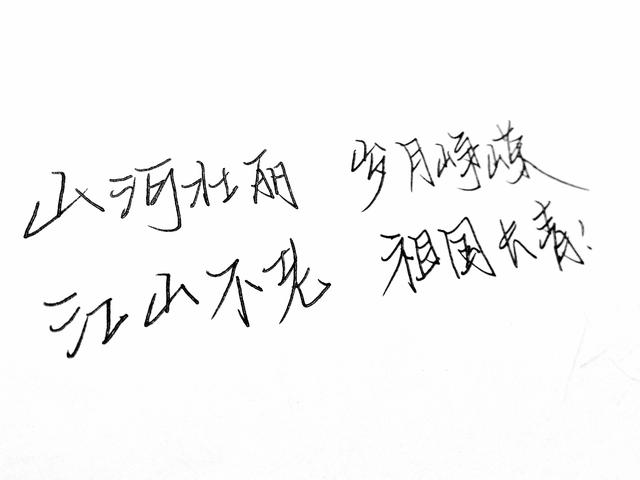 山河壮丽 岁月峥嵘
江山不老 祖国长青!